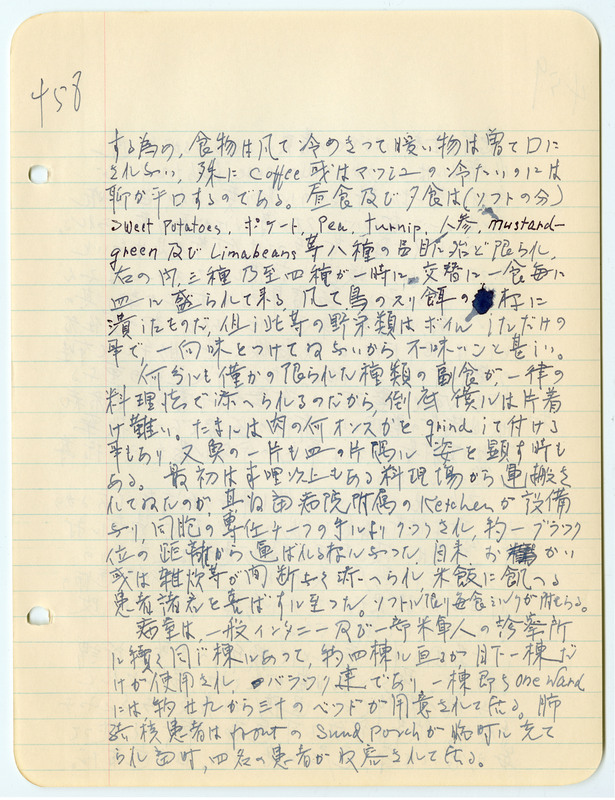 458
する為め、食物は凡て冷めきつて暖い物は曽て口に
されない、殊に coffee 或はマツシユの冷たいのには
聊か平口するのである。昼食及び夕食は(ソフトの分)
sweet potatoes, ポケート, pea, turnip, 人参, mustard-
green 及び Limabeans 等八種の品目に殆ど限られ、
右の内、三種乃至四種が一時に、交替に一食毎に
皿に盛られて来る 凡て鳥のスリ餌の 様に
潰したものだ、但し此等の野菜類はボイル したゞけの
事で、一向味をつけてゐないから 不味いこと甚しい。
何分にも僅かの限られた種類の副食が、一律の
料理法で添へられるのだから、到底 僕には片着
け難い。たまには肉の何オンスかを grind して付ける
事もあり 又魚の一片も皿の片隅に 姿を顕す時も
ある。 最初は 哩以上もある料理場から運搬さ
れてゐたのが 其後当病院所属の Ketchen が設備
され、同胞の専任チーフの手により つくられ、約一ブラツク
位の 距離から運ばれる様になつた 目下 お かい
或は雑炊等が間断なく添へられ、米飯に飢へる
患者諸君を喜ばすに至つた。ソフトに限り毎食ミルクが附せらる。
病室は、一般インタニー及び一部米軍人の診察所
に續く同じ棟にあつて、約四棟に亘るが 目下一棟だ
けが使用され、バラツク建であり、一棟即ち one ward
には約廿九から三十のベツドが用意されて居る。肺
結核患者は front の Sund porch が臨時に充て
られ 当時、四名の患者が収容されて居る。